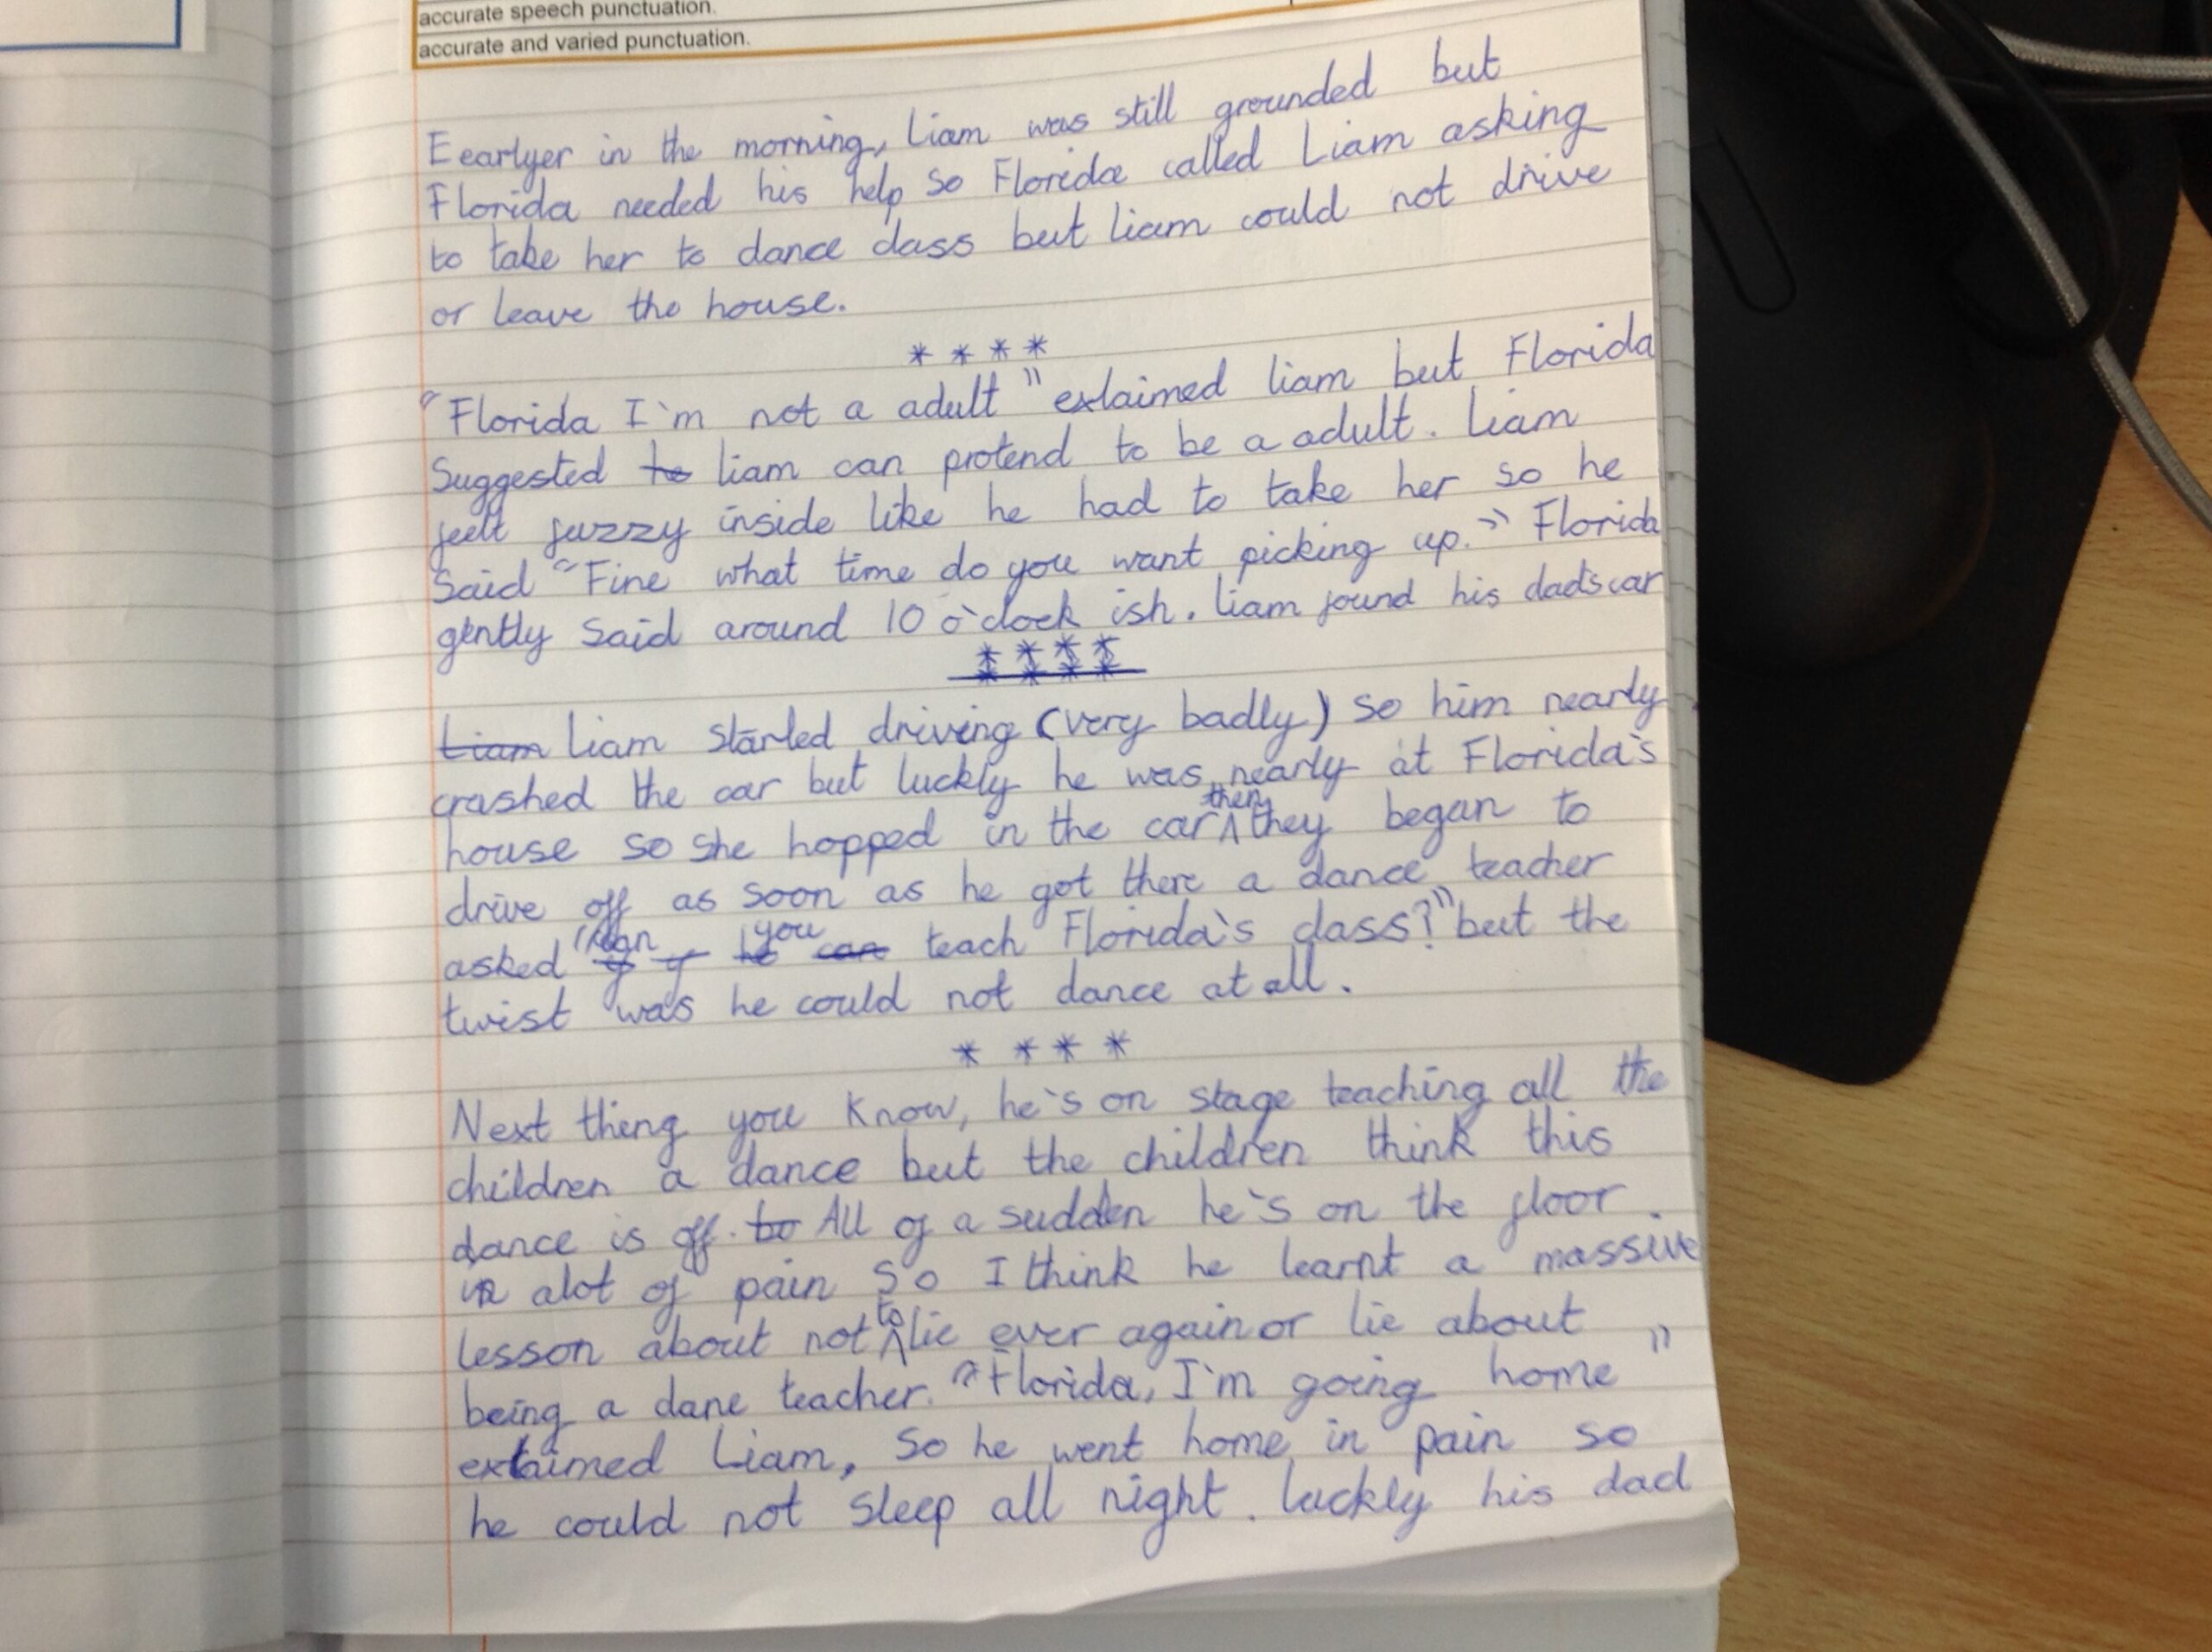 accurate speech punctuation.
accurate and varied punctuation.
Eearlyer in the morning, Liam was still grounded but
Florida needed his help so Florida called Liam asking
to take her to dance class but Liam could not drive
or leave the house.
* * * *
"Florida I'm not a adult" exlaimed liam but Florida
Suggested to liam can protend to be a adult. Liam
feelt fuzzy inside like he had to take her so he
Said "Fine what time do you want picking up." Florida
gently Said around 10 o'clock ish. Liam found his dad's car
* * * *
Liam Liam started driving (very badly) so him nearly
crashed the car but luckly he was nearly at Florida's
house so she hopped in the car then they began to
drive off as soon as he got there a dance teacher
asked "can you teach Florida's class?" but the
twist was he could not dance at all.
* * * *
Next thing you Know, he's on stage teaching all the
children a dance but the children think this
dance is off. to All of a sudden he's on the floor.
in alot of pain So I think he learnt a massive
lesson about not to lie ever again or lie about
being a dane teacher. "Florida, I'm going home"
exlaimed Liam, So he went home in pain so
he could not sleep all night. luckly his dad